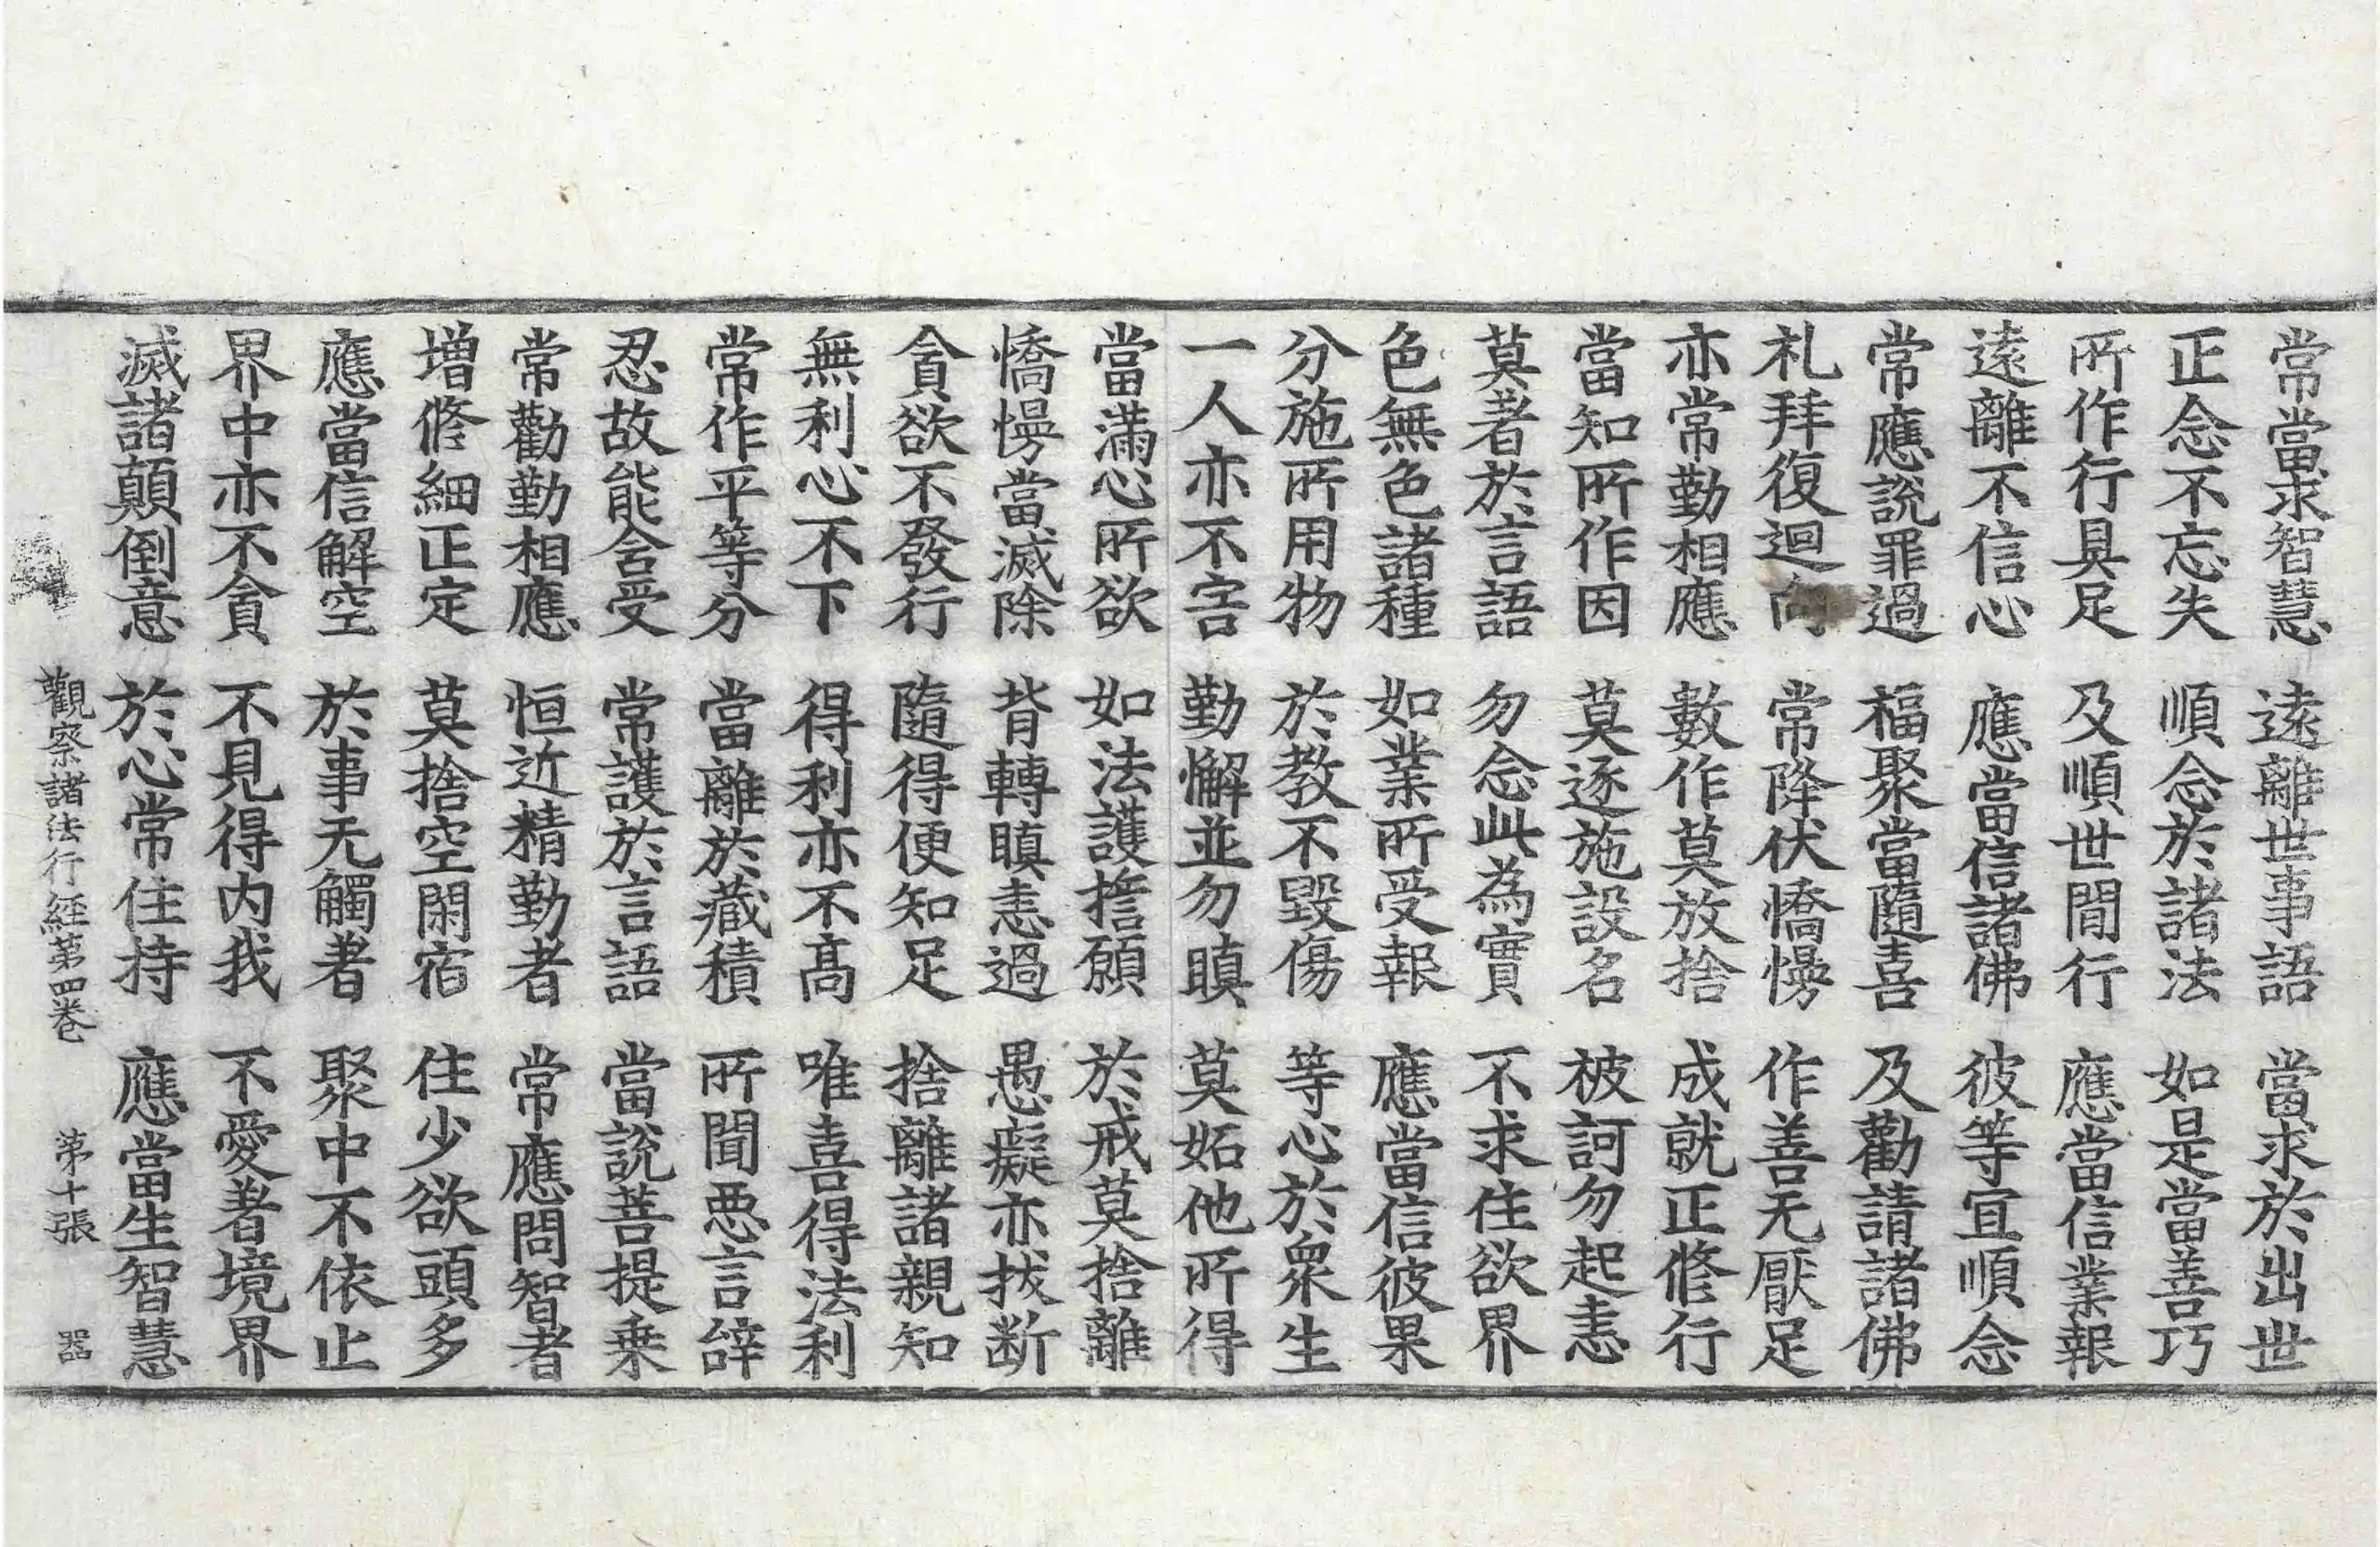 常當求智慧 遠離世事語 當求於出世
正念不忘失 順念於諸法 如是當善巧
所作行具足 及順世間行 應當信業報
遠離不信心 應當信諸佛 彼等宜順念
常應說罪過 福聚當隨喜 及勸請諸佛
礼拜復迴向 常降伏憍慢 作善无厭足
亦常勤相應 數作莫放捨 成就正修行
當知所作因 莫逐施設名 被訶勿起恚
莫著於言語 勿念此為實 不求住欲界
色無色諸種 如業所受報 應當信彼果
分施所用物 於教不毀傷 等心於眾生
一人亦不害 勤懈並勿瞋 莫妬他所得
當滿心所欲 如法護擔願 於戒莫捨離
憍慢當滅除 背轉瞋恚過 愚癡亦拔断
貪欲不發行 隨得便知足 捨離諸親知
無利心不下 得利亦不髙 唯喜得法利
常作平等分 當離於藏積 所聞惡言辝
忍故能含受 常護於言語 當說菩提乗
常勸勤相應 恒近精勤者 常應問智者
增修細正定 莫捨空閑宿 住少欲頭多
應當信解空 於事无觸著 聚中不依止
界中亦不貪 不見得内我 不愛著境界
滅諸顛倒意 於心常住持 應當生智慧
觀察諸法行経第四卷 第十張 器